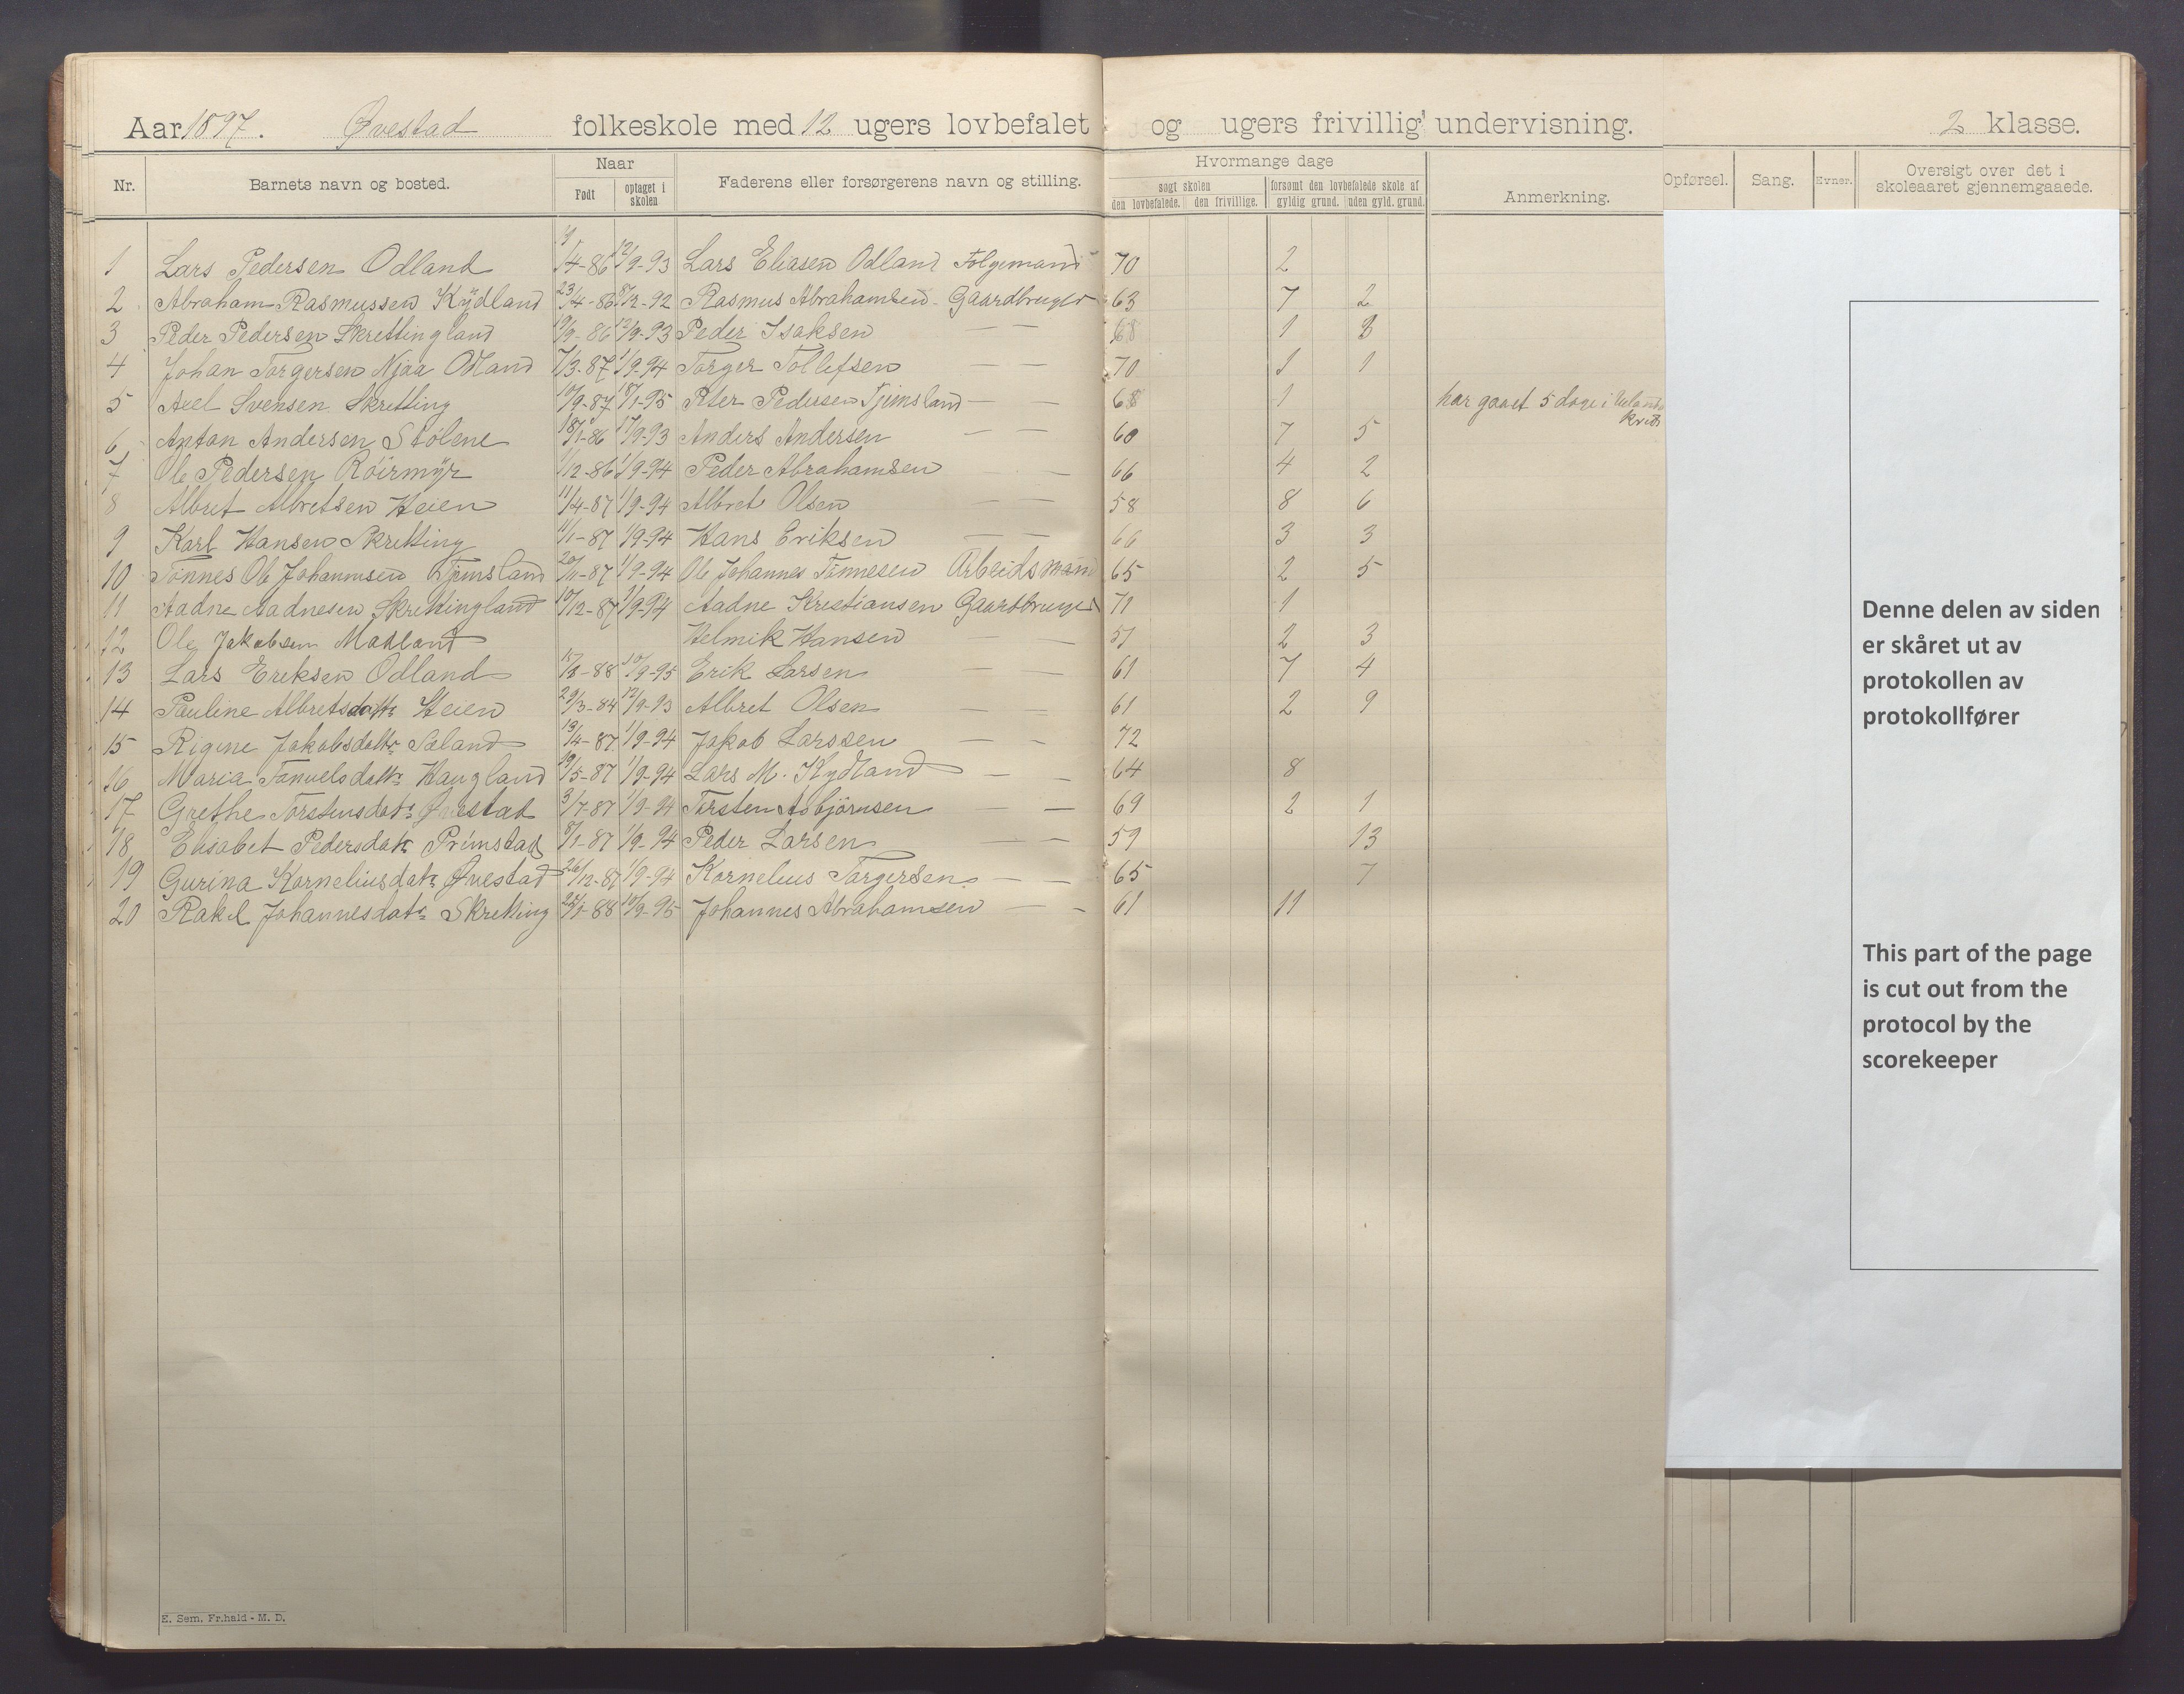 Aar 1897. Øvestad folkeskole med 12 ugers lovbefalet og ugers frivillig undervisning. 2 klasse.
Nr. Barnets navn og bosted. Naar Født optaget i skolen Faderens eller forsørgerens navn og stilling. Hvormange dage søgt skolen den lovbefalede. den frivillige. forsømt den lovbefalede skole af gyldig grund. uden gyld. grund. Anmerkning. Opførsel. Sang. Evner. Oversigt over det i skoleaaret gjennemgaaede.
1 Lars Pedersen Odland 1/4-86 12/9-93 Lars Eliasen Odland Folgemand 70 2
2 Abraham Rasmussen Kydland 23/4-86 8/12-92 Rasmus Abrahamsen - Gaardbruger 63 7 2
3 Peder Pedersen Skrettingland 19/9-86 12/9-93 Peder Isaksen — — 68 1
4 Johan Torgersen Njaa Odland 7/3-87 1/9-94 Torger Tollefsen — — 70 1 1
5 Axel Svensen Skretting 10/9-87 18/1-95 Peter Pedersen Tjimsland — — 68 1 har gaaet 5 dage i
6 Antan Andersen Stølene 18/1-86 17/9-93 Anders Andersen — — 60 7 5
7 Ole Pedersen Röirmyr 1/12-86 1/9-94 Peder Abrahamsen — 66 4 2
8 Albret Albretsen Heien 11/4-87 1/9-94 Albret Olsen — — 58 8 6
9 Karl Hansen Skretting 11/1-87 1/9-94 Hans Eriksen — — 66 3 3
10 Tönnes Ole Johannesen Tjimsland 20/11-87 1/9-94 Ole Johannes Tönnesen Arbeidsmand 65 2 5
11 Aadne Aadnesen Skrettingland 10/12-87 1/9-94 Aadne Kristiansen Gaardbruger 71 1
12 Ole Jakobsen Madland Helmik Hansen — — 51 2 3
13 Lars Eriksen Odland 88 10/9-95 Erik Larsen — — 61 7 4
14 Pauline Albretsdattr Heien 29/3-84 12/9-93 Albret Olsen — — 61 2 9
15 Rigine Jakobsdattr Søland 13/4-87 1/9-94 Jakob Larssen — — 72
16 Maria Tanuelsdattr Haugland 19/5-87 1/9-94 Lars M. Kydland — — 64 8
17 Grethe Torstensdatr Øvestad 3/7-87 1/9-94 Torsten Asbjörnsen — — 69 2 1
18 Elisabet Pedersdatr Primstad 8/1-87 1/9-94 Peder Larsen — — 59 13
19 Gurina Korneliusdatr Øvestad 26/12-87 1/9-94 Kornelius Torgersen — — 65 7
20 Rakel Johannesdatr Skretting 22/1-88 10/9-95 Johannes Abrahamsen — — 61 11
Denne delen av siden
er skåret ut av
protokollen av
protokollfører
This part of the page
is cut out from the
protocol by the
scorekeeper
E. Sem. Fr.hald - M. D.